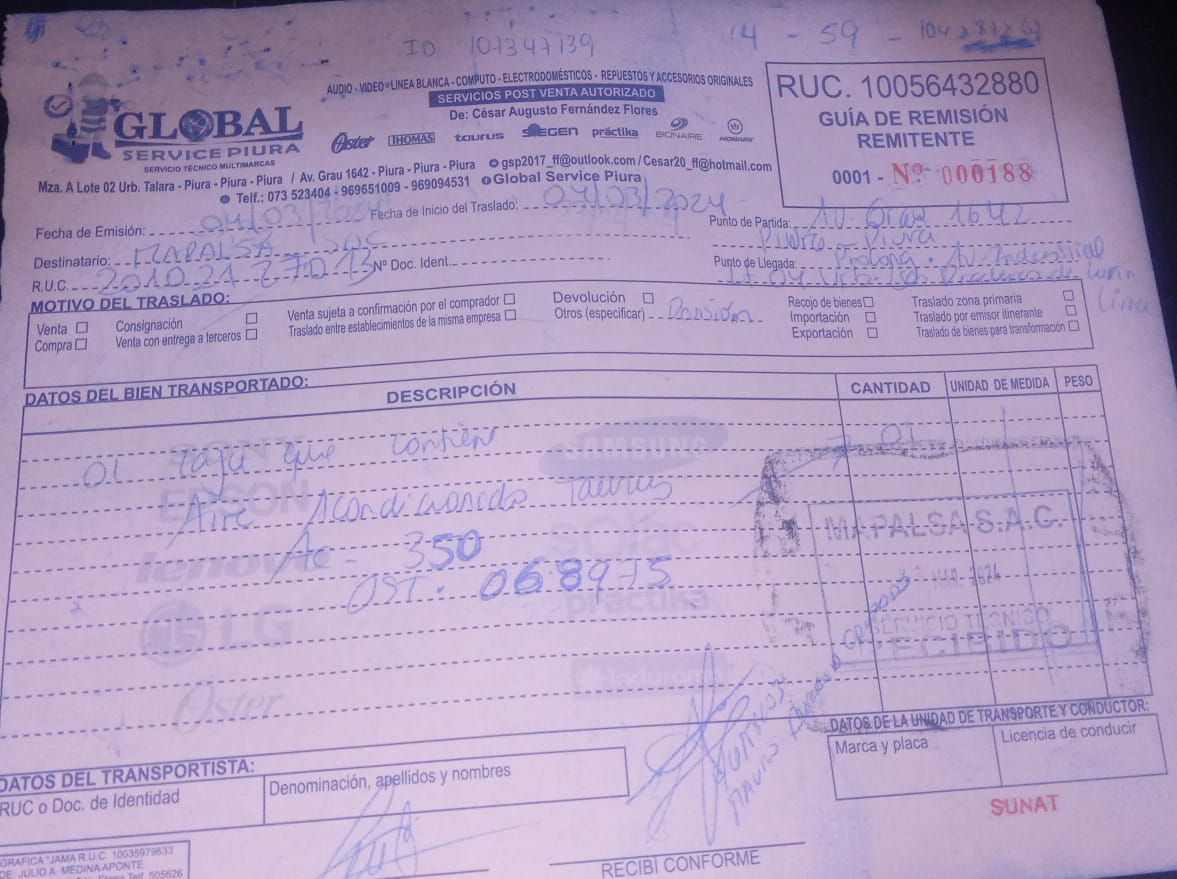 ID 101347139
14 - 59 - 104281261
AUDIO - VIDEO - LINEA BLANCA - COMPUTO - ELECTRODOMÉSTICOS - REPUESTOS Y ACCESORIOS ORIGINALES
SERVICIOS POST VENTA AUTORIZADO
De: César Augusto Fernández Flores
GLOBAL
SERVICE PIURA
SERVICIO TÉCNICO MULTIMARCAS
Oster THOMAS taurus SIEGEN práctika BIONAIRE MONARK
RUC. 10056432880
GUÍA DE REMISIÓN
REMITENTE
0001 - Nº 000188
Mza. A Lote 02 Urb. Talara - Piura - Piura - Piura / Av. Grau 1642 - Piura - Piura - Piura gsp2017_ff@outlook.com / Cesar20_ff@hotmail.com
Telf.: 073 523404 - 969651009 - 969094531 Global Service Piura
Fecha de Emisión: 04/03/2024 Fecha de Inicio del Traslado: 04/03/2024
Punto de Partida: Av. Grau 1642
Piura - Piura
Destinatario: MAPALSA SAC
Punto de Llegada: Prolong. Av. Industrial
R.U.C. Nº Doc. Ident.
Lurin
Lima
MOTIVO DEL TRASLADO:
Venta
Compra
Consignación
Venta con entrega a terceros
Venta sujeta a confirmación por el comprador
Traslado entre establecimientos de la misma empresa
Devolución
Otros (especificar)
Recojo de bienes
Importación
Exportación
Traslado zona primaria
Traslado por emisor itinerante
Traslado de bienes para transformación
DATOS DEL BIEN TRANSPORTADO:
DESCRIPCIÓN CANTIDAD UNIDAD DE MEDIDA PESO
01 caja que contiene 01
Aire Acondicionado Taurus
Ac - 350
OST. 068975
SONY
SAMSUNG
EPSON
lenovo
solac
LG
práctika
Oster
Indurama
MAPALSA S.A.C.
MAR. 2024
SERVICIO TÉCNICO
RECIBIDO
DATOS DE LA UNIDAD DE TRANSPORTE Y CONDUCTOR:
Marca y placa
Licencia de conducir
DATOS DEL TRANSPORTISTA:
RUC o Doc. de Identidad
Denominación, apellidos y nombres
SUNAT
RECIBÍ CONFORME
GRAFICA "JAMA R.U.C. 10035979633
DE: JULIO A. MEDINA APONTE
Telf. 505626